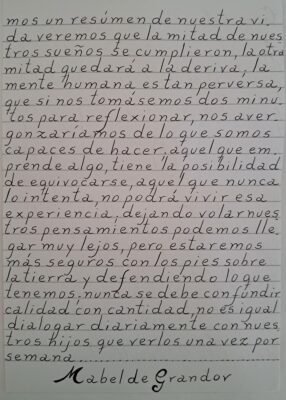 mos un resúmen de nuestra vi.
da veremos que la mitad de nues
tros sueños se cumplieron, la otra
mitad quedará a la deriva, la
mente humana, es tan perversa,
que si nos tomásemos dos minu.
tos para reflexionar, nos aver.
gonzaríamos de lo que somos
capaces de hacer. aquel que em.
prende algo, tiene la posibilidad
de equivocarse, aquel que nunca
lo intenta, no podrá vivir esa
experiencia, dejando volar nues
tros pensamientos podemos lle.
gar muy lejos, pero estaremos
más seguros con los pies sobre
la tierra y defendiendo lo que
tenemos, nunca se debe confúndir
calidad con cantidad, no es igual
dialogar diariamente con nues
tros hijos que verlos una vez por
semana..........................
Mabel de Grandov